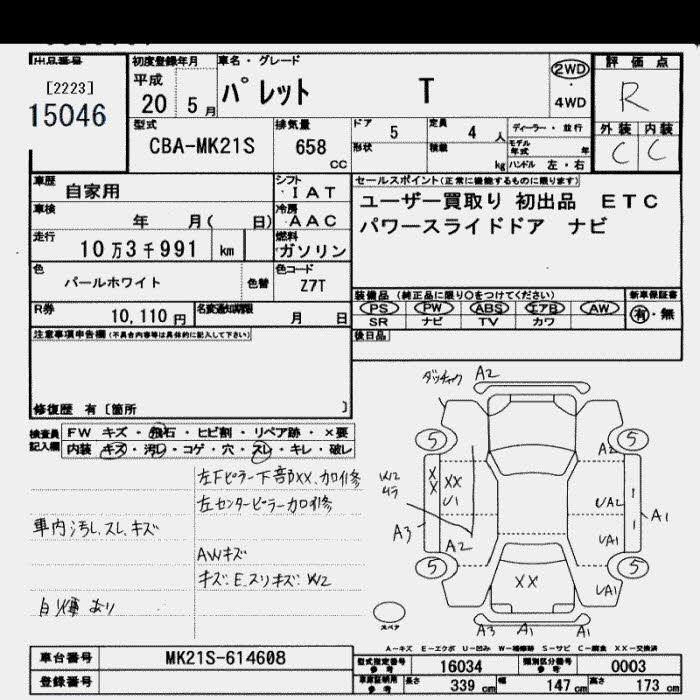 出品番号
[2223]
15046
初度登録年月
平成
20 5 月
車名・グレード
パレット T
2WD
・
4WD
評価点
R
外装 内装
C C
型式
CBA-MK21S
排気量
658 cc
ドア 5
定員 4 人
形状
積載 kg
ディーラー・並行
モデル年式 年
ハンドル 左・右
車歴
自家用
シフト
IAT
車検
年 月( 日)
冷房
AAC
走行
10万3千991 km
燃料
ガソリン
色
パールホワイト
色替
色コード
Z7T
R券
10,110 円
名変通知期限
月 日
セールスポイント(正常に機能するものに限ります)
ユーザー買取り 初出品 ETC
パワースライドドア ナビ
装備品 (純正品に限り○をつけてください)
新車保証書
PS PW ABS エアB AW
SR ナビ TV カワ
有・無
後日品
注意事項申告欄(不具合内容等は具体的に記入して下さい)
修復歴 有〔箇所 〕
検査員記入欄
FW キズ・飛石・ヒビ割・リペア跡・×要
内装 キズ・汚レ・コゲ・穴・スレ・キレ・破レ
左Fピラー下部XX、加修
左センターピラー加修
車内汚レ、スレ、キズ
AWキズ
キズ、E、スリキズ、W2
A2
5 5
A2
W2
ムラ
XX
XX
U1
UA2
A3
A2
A1
UA1
5 5
XX
UA1
スペア
A3 A1 A1
A-キズ E-エクボ U-凹み W-補修跡 S-サビ C-腐食 XX-交換済
車台番号
MK21S-614608
登録番号
型式指定番号 参考 16034
類別区分番号 参考 0003
車庫証明用 参考
長さ 339 cm
幅 147 cm
高さ 173 cm